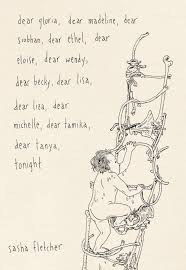 dear gloria, dear madeline, dear
siobhan, dear ethel, dear
eloise, dear wendy,
dear becky, dear lisa,
dear liza, dear
michelle, dear tamika,
dear tanya,
tonight
sasha fletcher